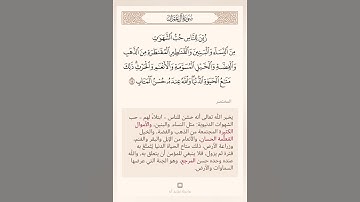 سُورَةُ آلِ عِمْرَانَ
زُيِّنَ لِلنَّاسِ حُبُّ الشَّهَوَاتِ
مِنَ النِّسَاءِ وَالْبَنِينَ وَالْقَنَاطِيرِ الْمُقَنطَرَةِ مِنَ الذَّهَبِ
وَالْفِضَّةِ وَالْخَيْلِ الْمُسَوَّمَةِ وَالْأَنْعَامِ وَالْحَرْثِ ذَٰلِكَ
مَتَاعُ الْحَيَاةِ الدُّنْيَا وَاللَّهُ عِندَهُ حُسْنُ الْمَآبِ
المختصر
يخبر الله تعالى أنه حسّن للناس - ابتلاءً لهم - حب
الشهوات الدنيوية: مثل النساء، والبنين، والأموال
الكثيرة المجتمعة من الذهب والفضة، والخيل
المعلّمة الحسان، والأنعام من الإبل والبقر والغنم،
وزراعة الأرض، ذلك متاع الحياة الدنيا يُتمتّع به
فترة ثم يزول، فلا ينبغي للمؤمن أن يتعلق به، والله
عنده وحده حسن المرجع، وهو الجنة التي عرضها
السماوات والأرض.